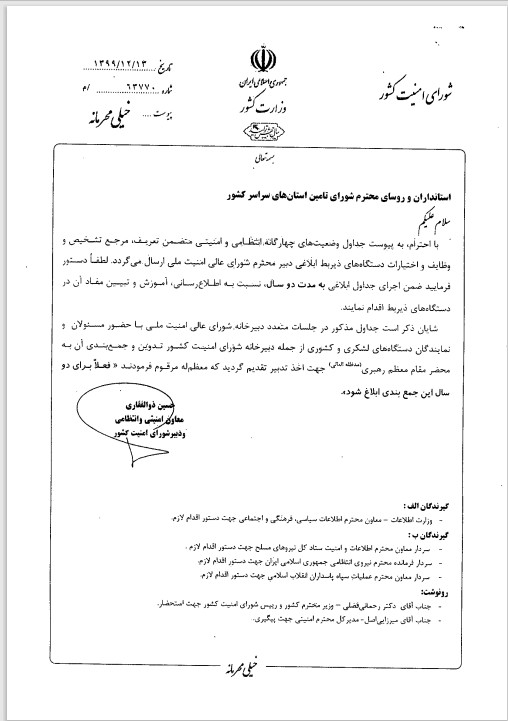 تاریخ ۱۳۹۹/۱۲/۱۳
شماره ۶۳۷۷۰ /م
پیوست
خیلی محرمانه
جمهوری اسلامی ایران
وزارت کشور
شورای امنیت کشور
بسمه تعالی
استانداران و روسای محترم شورای تامین استان‌های سراسر کشور
سلام علیکم
با احترام، به پیوست جداول وضعیت‌های چهارگانه انتظامی و امنیتی متضمن تعریف، مرجع تشخیص و
وظایف و اختیارات دستگاه‌های ذیربط ابلاغی دبیر محترم شورای عالی امنیت ملی ارسال می‌گردد. لطفاً دستور
فرمایید ضمن اجرای جداول ابلاغی به مدت دو سال، نسبت به اطلاع‌رسانی، آموزش و تبیین مفاد آن در
دستگاه‌های ذیربط اقدام نمایند.
شایان ذکر است جداول مذکور در جلسات متعدد دبیرخانه شورای عالی امنیت ملی با حضور مسئولان و
نمایندگان دستگاه‌های لشکری و کشوری از جمله دبیرخانه شورای امنیت کشور تدوین و جمع‌بندی آن به
محضر مقام معظم رهبری (مدظله العالی) جهت اخذ تدبیر تقدیم گردید که معظم‌له مرقوم فرمودند « فعلاً برای دو
سال این جمع بندی ابلاغ شود».
حسین ذوالفقاری
معاون امنیتی و انتظامی
و دبیر شورای امنیت کشور
گیرندگان الف :
- وزارت اطلاعات – معاون محترم اطلاعات سیاسی، فرهنگی و اجتماعی جهت دستور اقدام لازم.
گیرندگان ب :
- سردار معاون محترم اطلاعات و امنیت ستاد کل نیروهای مسلح جهت دستور اقدام لازم .
- سردار فرمانده محترم نیروی انتظامی جمهوری اسلامی ایران جهت دستور اقدام لازم.
- سردار معاون محترم عملیات سپاه پاسداران انقلاب اسلامی جهت دستور اقدام لازم.
رونوشت:
- جناب آقای دکتر رحمانی‌فضلی – وزیر محترم کشور و رییس شورای امنیت کشور جهت استحضار.
- جناب آقای میرزایی‌اصل- مدیرکل محترم امنیتی جهت پیگیری.
خیلی محرمانه